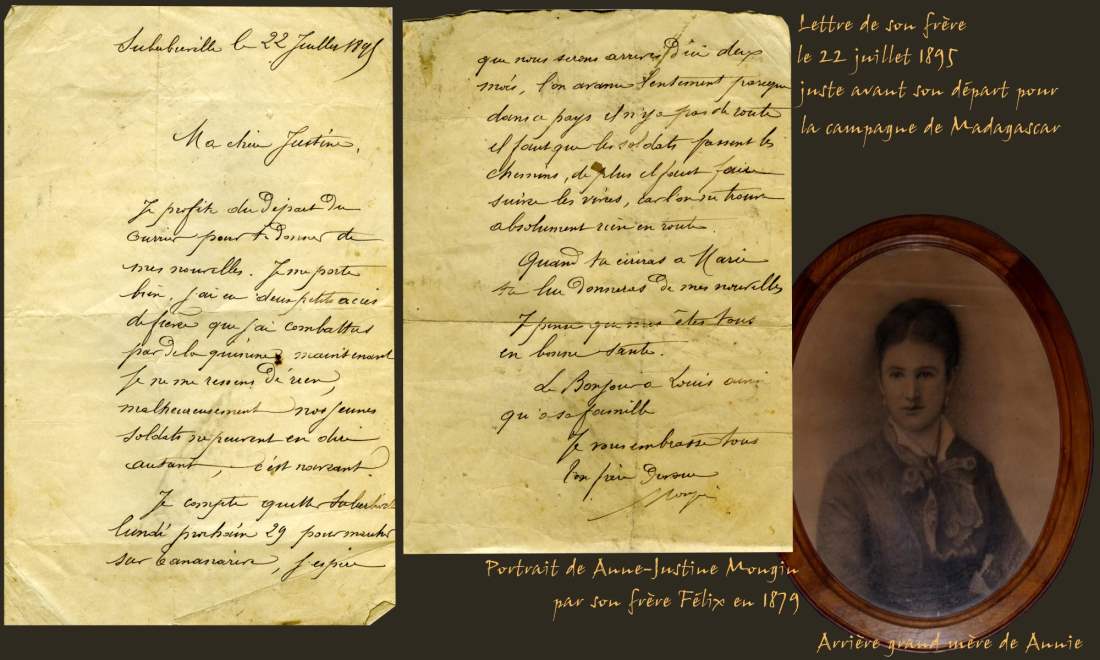 Suberbieville le 22 Juillet 1895
Ma chère Justine,
Je profite du départ du
Courrier pour te donner de
mes nouvelles. Je me porte
bien, j'ai eu deux petits accès
de fièvre que j'ai combattus
par de la quinine, maintenant
je ne me ressens de rien,
malheureusement nos jeunes
soldats ne peuvent en dire
autant, c'est navrant.
Je compte quitter Suberbieville
lundi prochain 29 pour marcher
sur Tananarive, j'espère
que nous serons arrivés d'ici deux
mois, l'on avance lentement parceque
dans ce pays il n'y a pas de route
il faut que les soldats fassent les
chemins, de plus il faut faire
suivre les vivres, car l'on ne trouve
absolument rien en route.
Quand tu écriras a Marie
tu lui donneras de mes nouvelles
Je pense que vous êtes tous
en bonne santé.
Le Bonjour a Louis ainsi
qu'a sa famille
Je vous embrasse tous
Ton frère
Mongin
Lettre de son frère
le 22 juillet 1895
juste avant son départ pour
la campagne de Madagascar
Portrait de Anne-Justine Mongin
par son frère Félix en 1879
Arrière grand mère de Annie